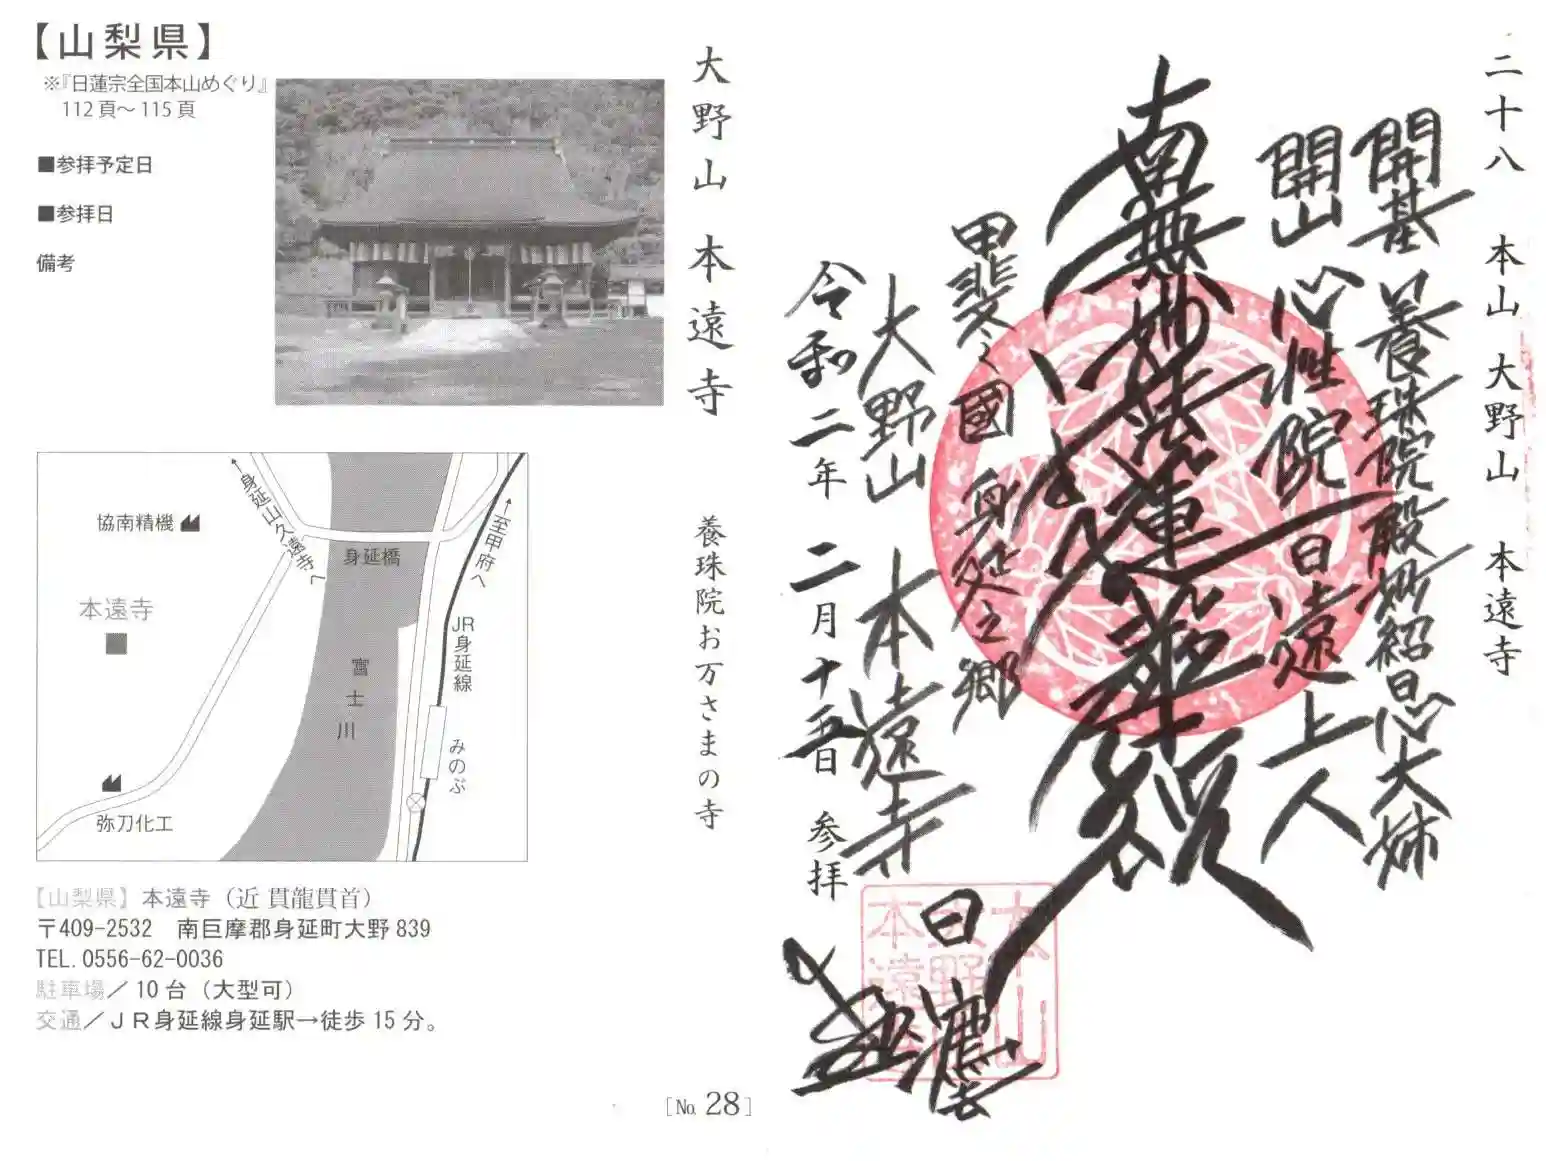 【山梨県】
※『日蓮宗全国本山めぐり』
112頁～115頁
■参拝予定日
■参拝日
備考
大野山 本遠寺
養珠院お万さまの寺
←身延山久遠寺へ
協南精機
身延橋
→至甲府へ
本遠寺
JR身延線
富士川
みのぶ
弥刀化工
【山梨県】本遠寺（近 貫龍貫首）
〒409-2532 南巨摩郡身延町大野839
TEL.0556-62-0036
駐車場／10台（大型可）
交通／ＪＲ身延線身延駅→徒歩15分。
[№ 28]
二十八 本山 大野山 本遠寺
開基 養珠院殿妙紹日心大姉
開山 心性院日遠上人
南無妙法蓮華経
甲斐之國 身延之郷
大野山 本遠寺
令和二年 二月十五日 参拝
日
本山
大野山
本遠寺